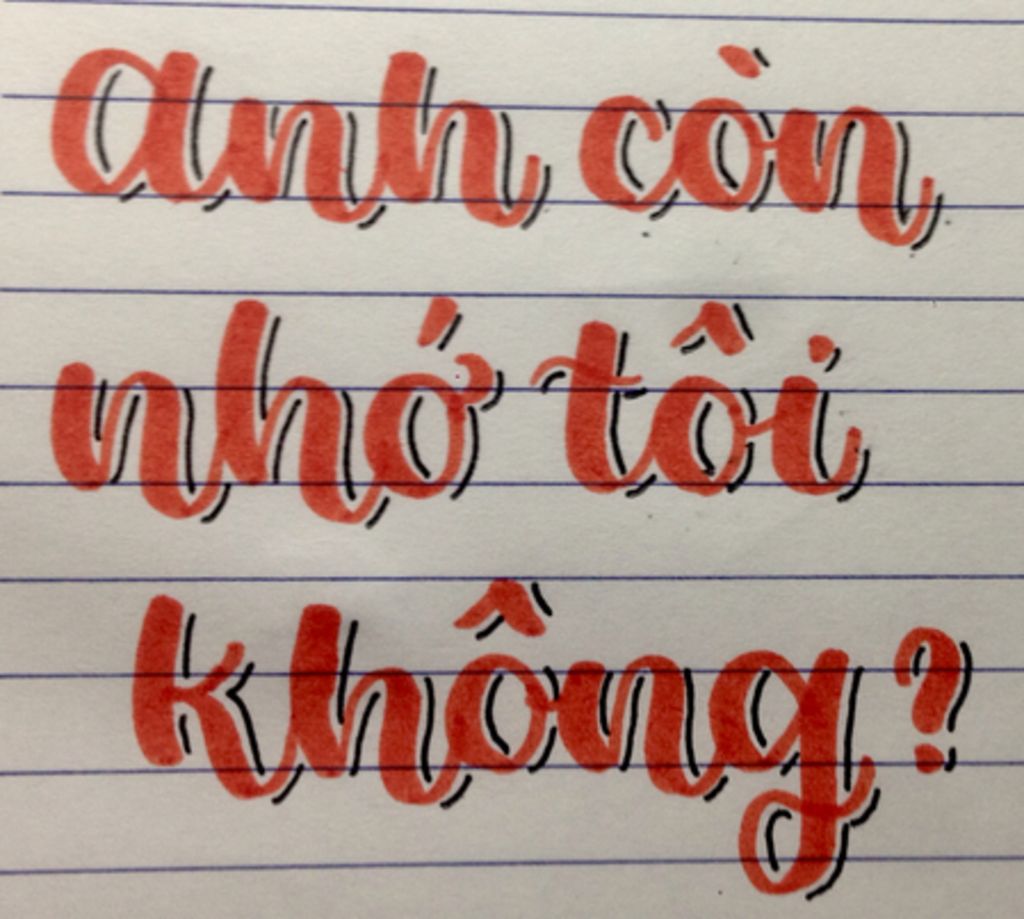 anh còn
nhớ tôi
không?